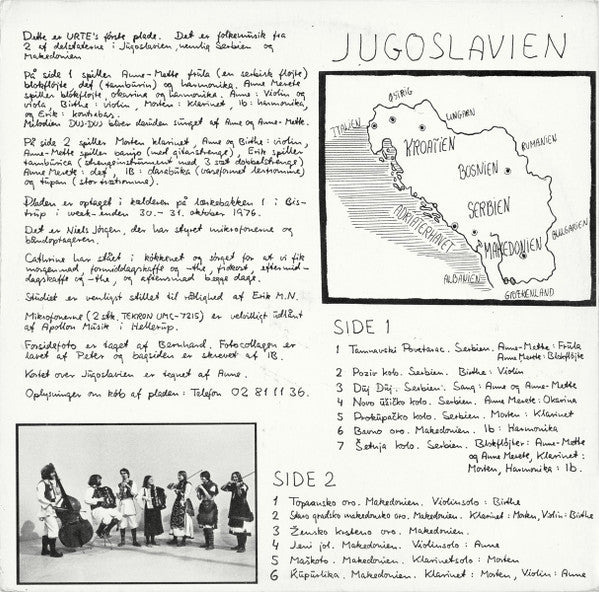 Dette er URTE's første plade. Det er folkemusik fra
2 af delstaterne i Jugoslavien, nemlig Serbien og
Makedonien
På side 1 spiller Anne-Mette frula (en serbisk fløjte)
blokfløjte, def (tambürin) og harmonika. Anne Merete
spiller blokfløjte, okarina og harmonika. Anne: Violin og
viola, Birthe: violin, Morten: Klarinet, Ib: harmonika,
og Erik: kontrabas.
Melodien DUJ-DUJ bliver desuden sunget af Anne og Anne-Mette.
På side 2 spiller Morten klarinet, Anne og Birthe: violin,
Anne-Mette spiller banjo (med gitarstrenge), Erik spiller
tambürica (strengeinstrument med 3 sæt dobbeltstrenge)
Anne Merete: def, IB: darabüka (vaseformet lertromme)
og tüpan (stor tromme).
Pladen er optaget i kælderen på lærkebakken 1 i Bis-
trüp i week-enden 30.- 31. oktober 1976.
Det er Niels Jörgen, der har styret mikrofonerne og
båndoptageren.
Cathrine har stået i køkkenet og sørget for at vi fik
morgenmad, formiddagskaffe og -the, frokost, eftermid-
dagskaffe og -the, og aftensmad begge dage.
Stüdiet er venligst stillet til rådighed af Erik M.N.
Mikrofonerne (2 stk. TEKRON UMC-7215) er velvilligt üdlånt
af Apollon Müsik i Hellerup.
Forsidefoto er taget af Bernhard. Fotocollagen er
lavet af Peter og bagsiden er skrevet af IB.
Kortet over Jügoslavien er tegnet af Anne.
Oplysninger om køb af pladen: Telefon 02 81 11 36.
JUGOSLAVIEN
ØSTRIG
ITALIEN
UNGARN
KROATIEN
RUMANIEN
BOSNIEN
SERBIEN
ADRIATERHAVET
BULGARIEN
MAKEDONIEN
ALBANIEN
GRÆKENLAND
SIDE 1
1 Tamnavski Povetarac. Serbien. Anne-Mette: Früla
Anne Merete: Blokfløjte
2 Pozir kolo. Serbien. Birthe: Violin
3 Düj Düj. Serbien. Sang: Anne og Anne-Mette
4 Novo üžičko kolo. Serbien. Anne Merete: Okarina
5 Proküpačko kolo. Serbien. Morten: Klarinet
6 Bavno oro. Makedonien. Ib: Harmonika
7 Šetnja kolo. Serbien. Blokfløjter: Anne-Mette
og Anne Merete, Klarinet:
Morten, Harmonika: Ib.
SIDE 2
1 Topaansko oro. Makedonien. Violinsolo: Birthe
2 Staro gradsko makedonsko oro. Makedonien. Klarinet: Morten, Violin: Birthe
3 Žensko krsteno oro. Makedonien.
4 Jeni jol. Makedonien. Violinsolo: Anne
5 Maškoto. Makedonien. Klarinetsolo: Morten
6 Küpürlika. Makedonien. Klarinet: Morten, Violin: Anne